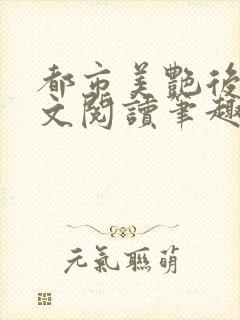 都市美艷後
文閱讀筆趣
元氣聯萌